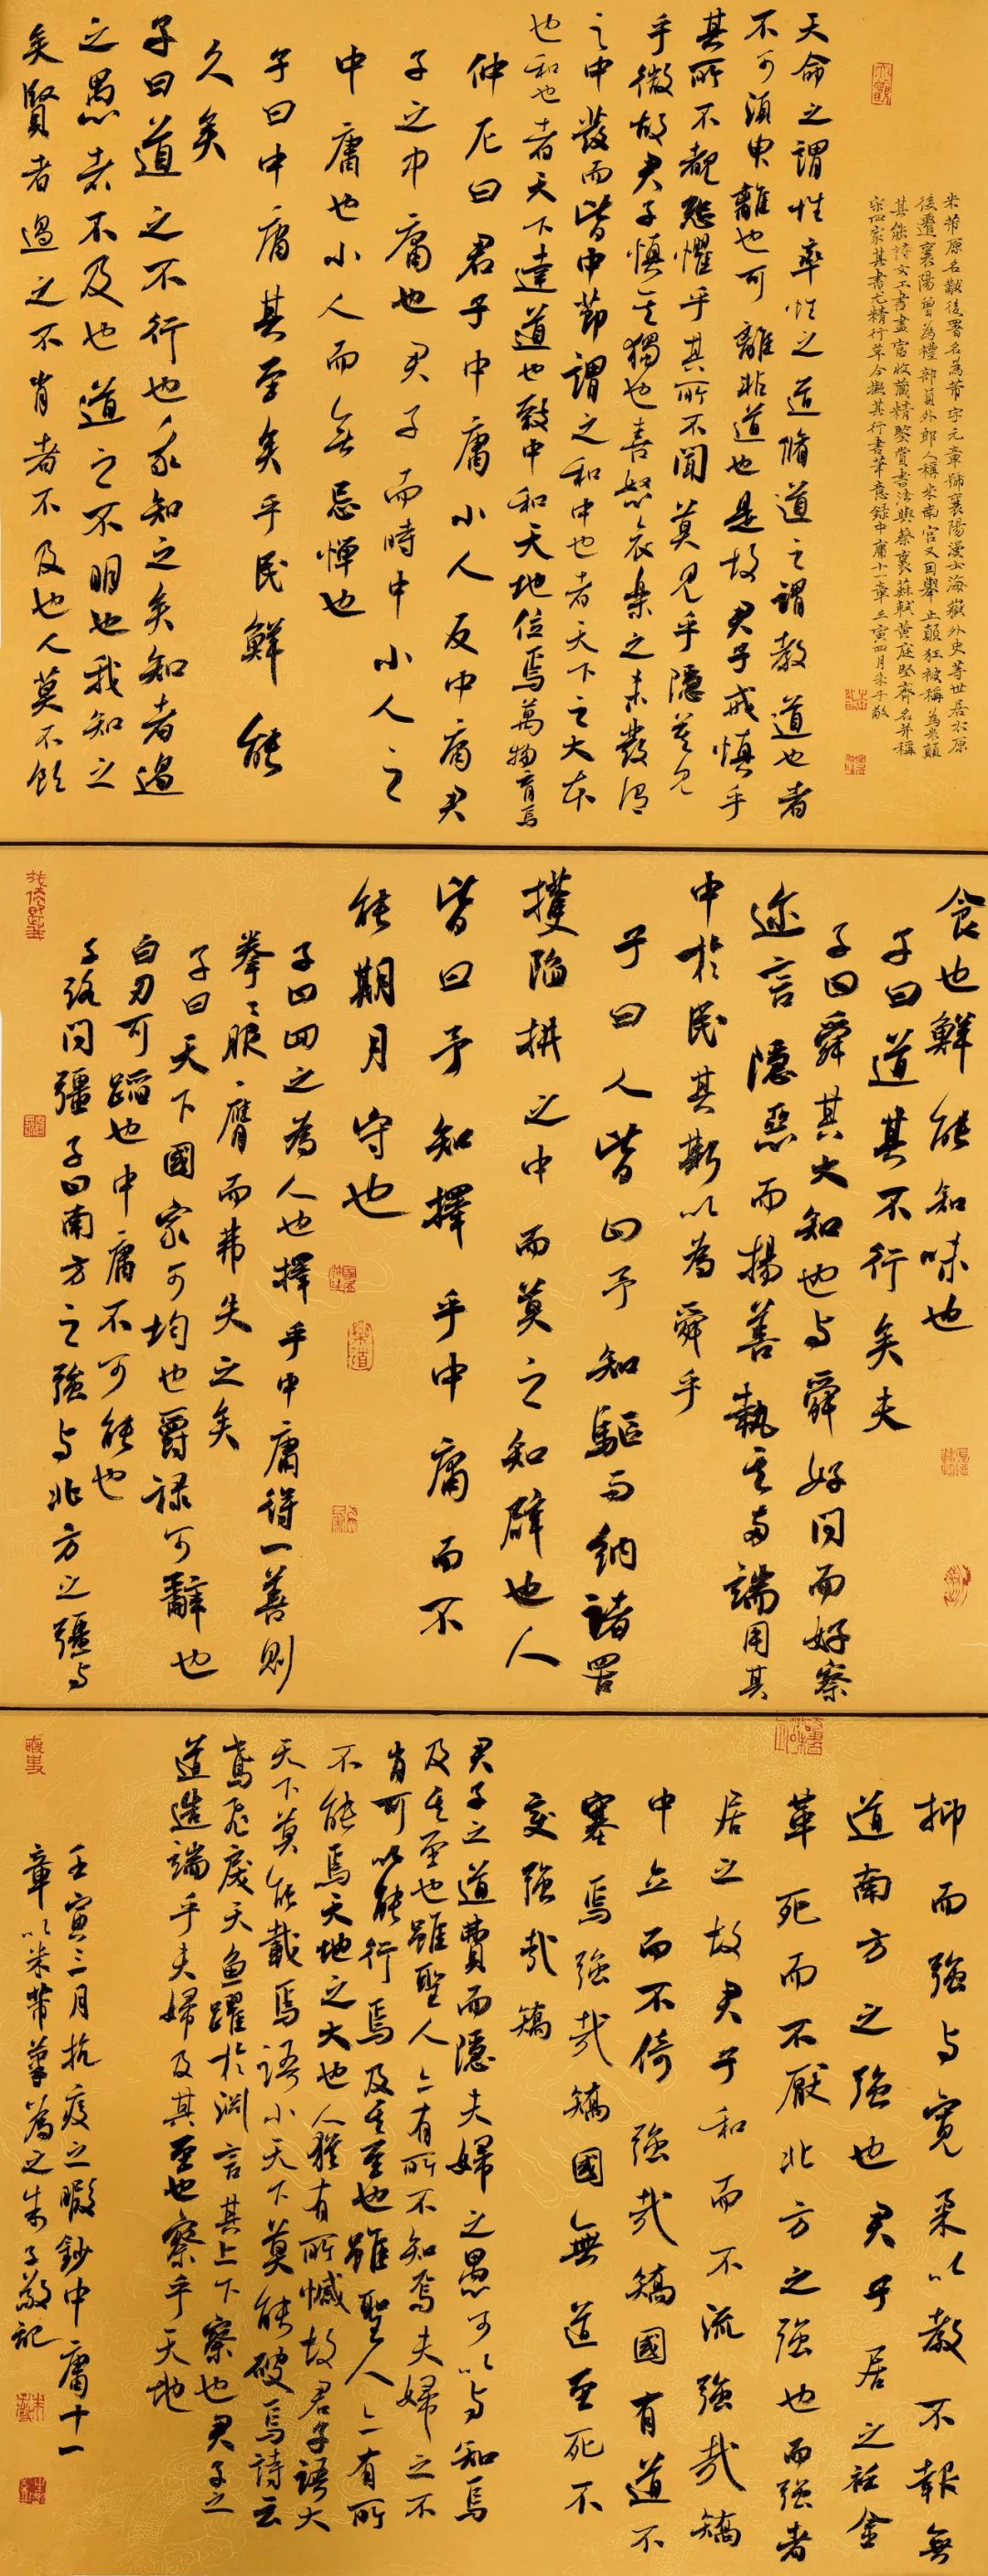 米芾原名黻後署名為芾字元章號襄陽漫士海嶽外史等世居太原
後遷襄陽曾為禮部員外郎人稱米南宮又因舉止顛狂被稱為米顛
其能詩文工書畫富收藏精鑒賞書法與蔡襄蘇軾黃庭堅齊名并稱
宋四家其書尤精行草今擬其行書筆意錄中庸十一章壬寅四月朱子敬
天命之謂性率性之道脩道之謂教道也者
不可須臾離也可離非道也是故君子戒慎乎
其所不覩恐懼乎其所不聞莫見乎隱莫見
乎微故君子慎其獨也喜怒哀樂之未發謂
之中發而皆中節謂之和中也者天下之大本
也和也者天下達道也致中和天地位焉萬物育焉
仲尼曰君子中庸小人反中庸君
子之中庸也君子而時中小人之
中庸也小人而無忌憚也
子曰中庸其至矣乎民鮮能
久矣
子曰道之不行也我知之矣知者過
之愚者不及也道之不明也我知之
矣賢者過之不肖者不及也人莫不飲
食也鮮能知味也
子曰道其不行矣夫
子曰舜其大知也与舜好问而好察
迩言隱惡而揚善執其両端用其
中於民其斯以為舜乎
子曰人皆曰予知驅而納諸罟
擭陷阱之中而莫之知辟也人
皆曰予知擇乎中庸而不
能期月守也
子曰回之為人也擇乎中庸得一善則
拳々服膺而弗失之矣
子曰天下國家可均也爵祿可辭也
白刃可蹈也中庸不可能也
子路问彊子曰南方之強与北方之彊与
抑而強与寬柔以教不報無
道南方之強也君子居之衽金
革死而不厭北方之強也而強者
居之故君子和而不流強哉矯
中立而不倚強哉矯國有道不
塞焉強哉矯國無道至死不
变強哉矯
君子之道費而隱夫婦之愚可以与知焉
及其至也雖聖人亦有所不知焉夫婦之不
肖可以能行焉及其至也雖聖人亦有所
不能焉天地之大也人猶有所憾故君子語大
天下莫能載焉語小天下莫能破焉詩云
鳶飛戾天鱼躍於淵言其上下察也君子之
道造端乎夫婦及其至也察乎天地
壬寅三月抗疫之暇鈔中庸十一
章以米芾筆為之朱子敬記